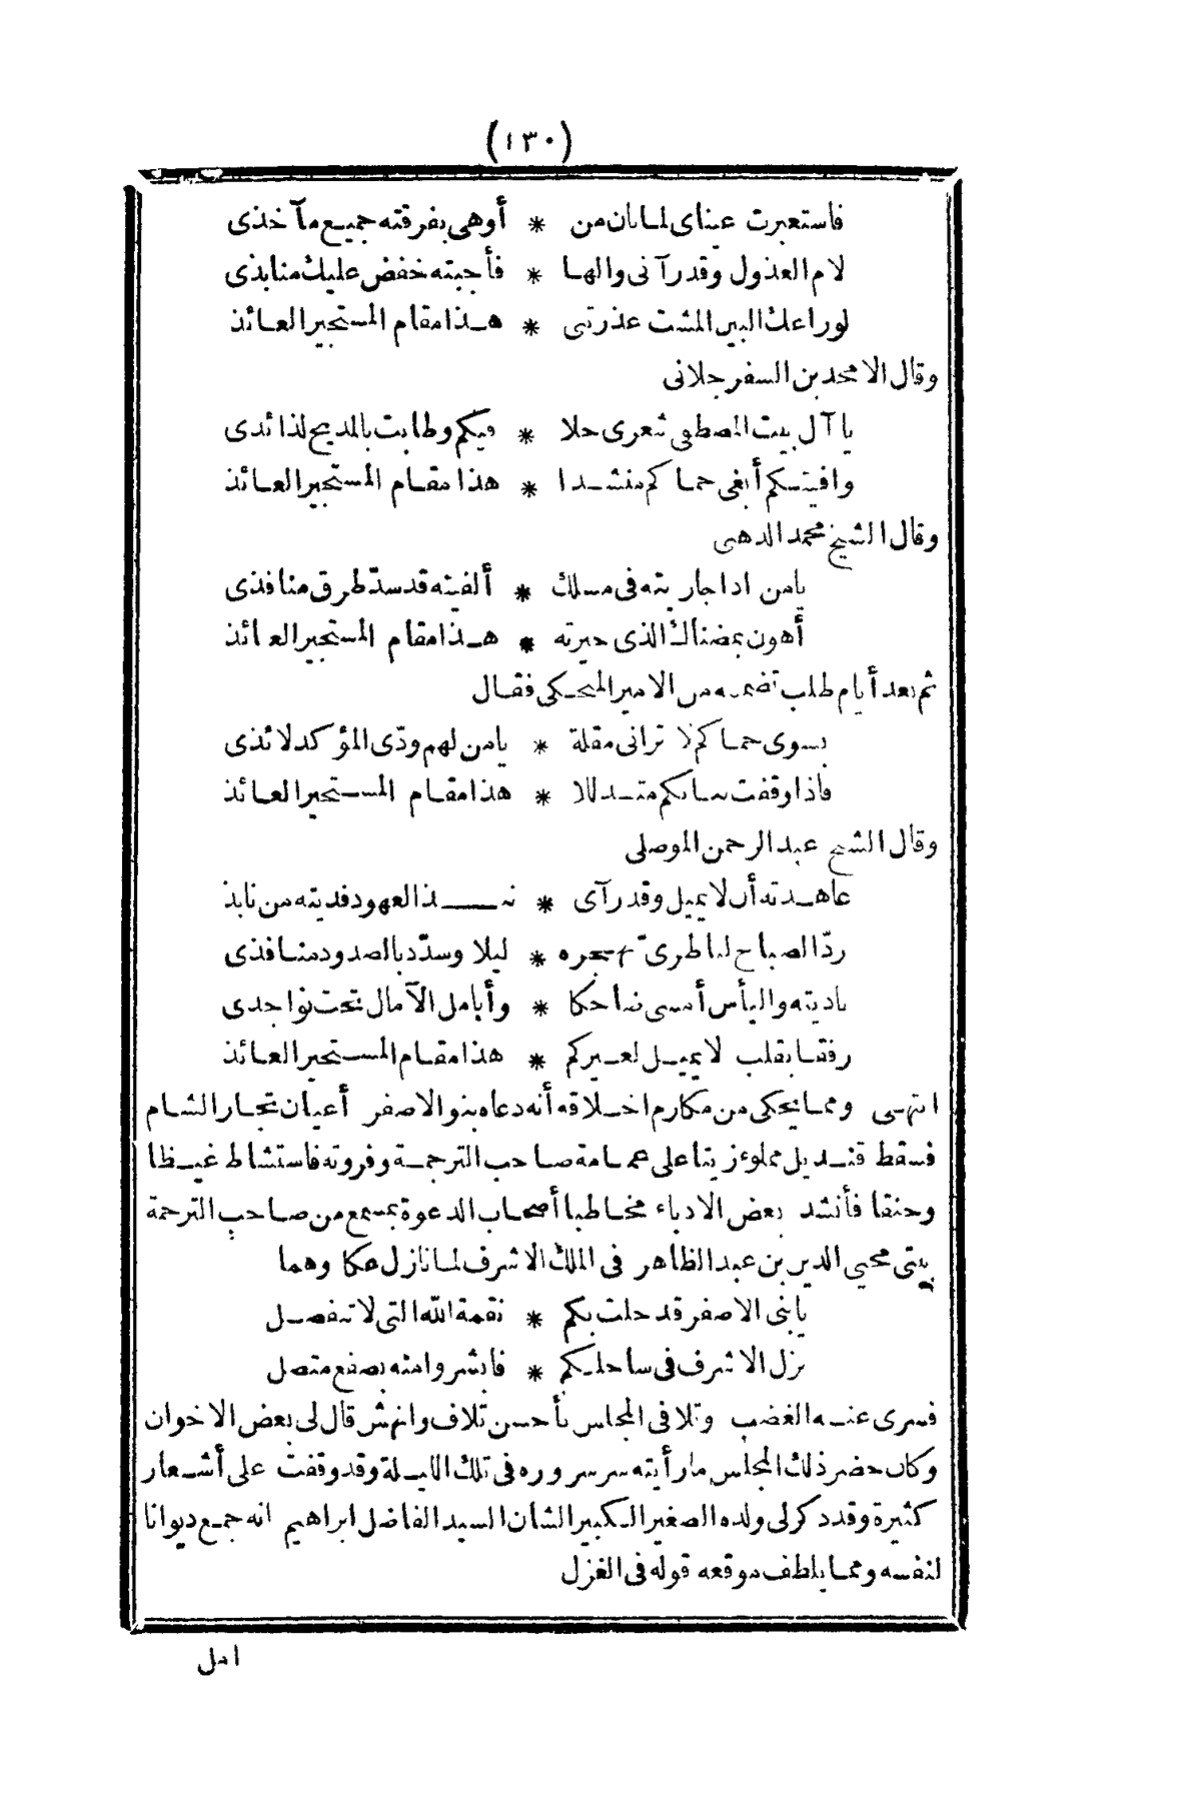 (١٣٠)
فاستعبرت عيناى لما بان من * أوهى بفرقته جميع مآخذى
لام العذول وقد رآنى والها * فأجبته خفض عليك منابذى
لو راعك البين المشت عذرتنى * هذا مقام المستجير العائذ
وقال الامحد بن السفرجلانى
يا آل بيت المصطفى شعرى حلا * فيكم وطابت بالمديح لذائذى
وافيتكم أبغى حماكم منشدا * هذا مقام المستجير العائذ
وقال الشيخ محمد الذهبى
يامن اذا جاريته فى مسلك * ألفيته قد سدّ طرق منافذى
أهون بمضناك الذى حيرته * هذا مقام المستجير العائذ
ثم بعد أيام طلب تضمينه من الامير المنجكى فقال
بسوى حماكم لا ترانى مقلة * يا من لهم ودّى المؤكد لائذى
فاذا وقفت ببابكم متذللا * هذا مقام المستجير العائذ
وقال الشيخ عبد الرحمن الموصلى
عاهدته أن لا يميل وقد رآى * نبذ العهود فديته من نابذ
ردّ الصباح لناظرىّ بهجره * ليلا وسدّد بالصدود منافذى
ناديته واليأس أمسى ضاحكا * وأنامل الآمال تحت نواجذى
رفقا بقلب لا يميل لغيركم * هذا مقام المستجير العائذ
انتهى ومما يحكى من مكارم اخلاقه أنه دعاه بنو الاصفر أعيان تجار الشام
فسقط قنديل مملوء زيتا على عمامة صاحب الترجمة وفروته فاستشاط غيظا
وحنقا فأنشد بعض الادباء مخاطبا أصحاب الدعوة بمسمع من صاحب الترجمة
بيتى محيي الدين بن عبد الظاهر فى الملك الاشرف لما نازل عكا وهما
يا بنى الاصفر قد حلت بكم * نقمة الله التى لا تنفصل
نزل الاشرف فى ساحلكم * فابشروا منه بصفع متصل
فسرى عنه الغضب وتلافى المجلس بأحسن تلاف وانهش قال لى بعض الاخوان
وكان حضر ذلك المجلس ما رأيته سر سروره فى تلك الليلة وقد وقفت على أشعار
كثيرة وقد ذكر لى ولده الصغير الكبير الشان السيد الفاضل ابراهيم انه جمع ديوانا
لنفسه ومما يلطف موقعه قوله فى الغزل
امل